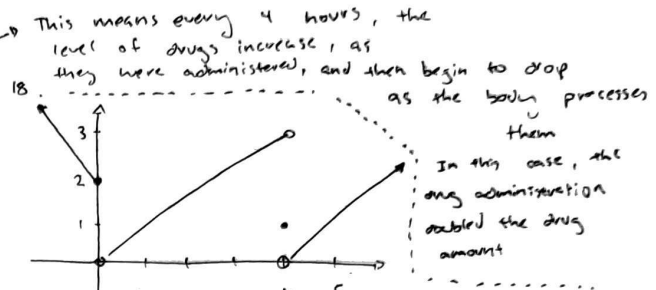 This means every 4 hours, the
level of drugs increase, as
they were administered, and then begin to drop
as the body processes
them
In this case, the
drug administration
doubled the drug
amount
18.
3
2
1